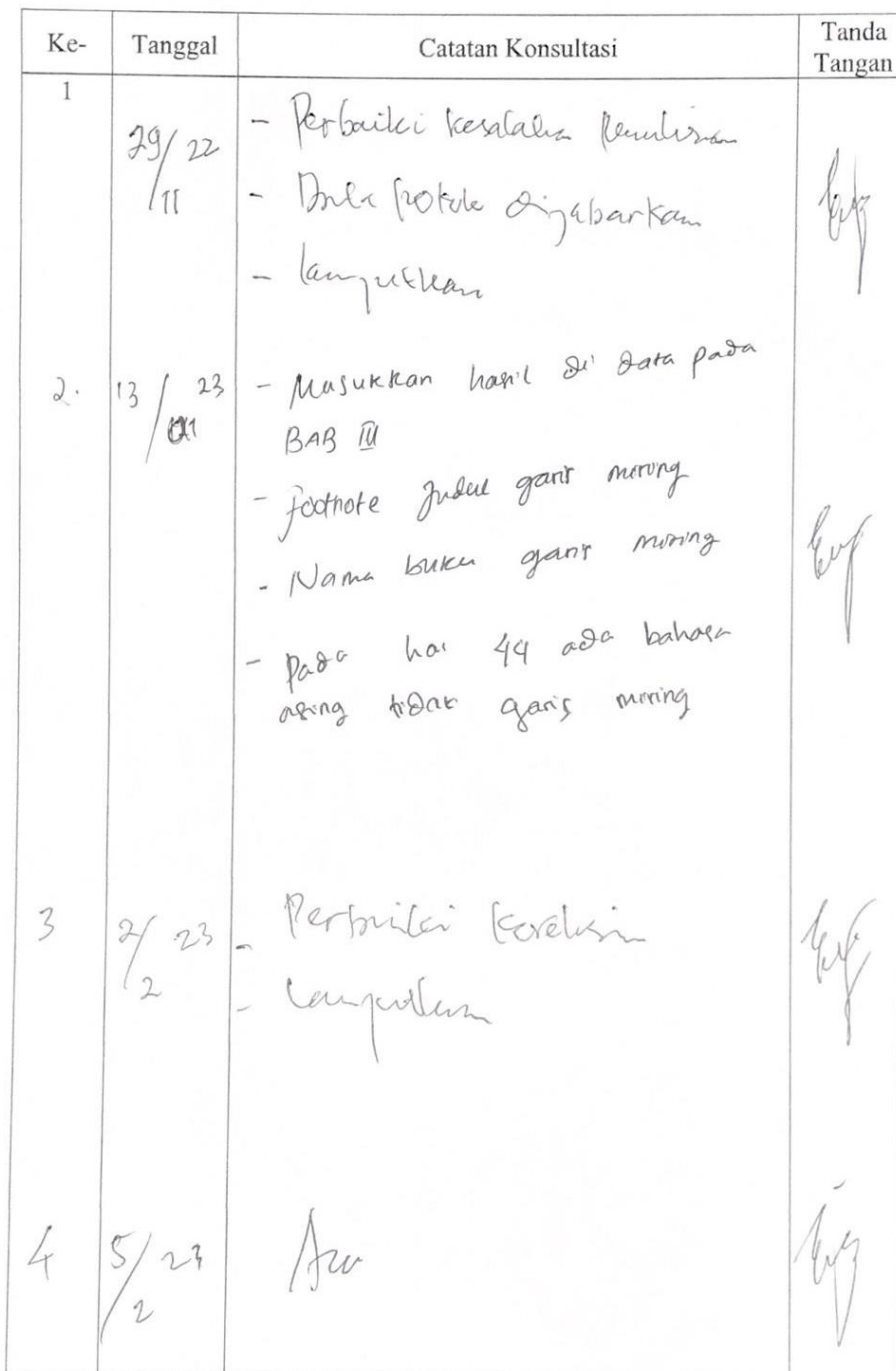 Ke- Tanggal Catatan Konsultasi Tanda Tangan
1
29/11 22 - Perbaiki kesalahan penulisan
- dijabarkan
- lanjutkan
2. 13/01 23 - Masukkan hasil di data pada
BAB IV
- footnote judul garis miring
- Nama buku garis miring
- pada hal 44 ada bahasa
asing tidak garis miring
3 2/2 23 - Perbaiki koreksian
- lanjutkan
4 5/2 23 Acc